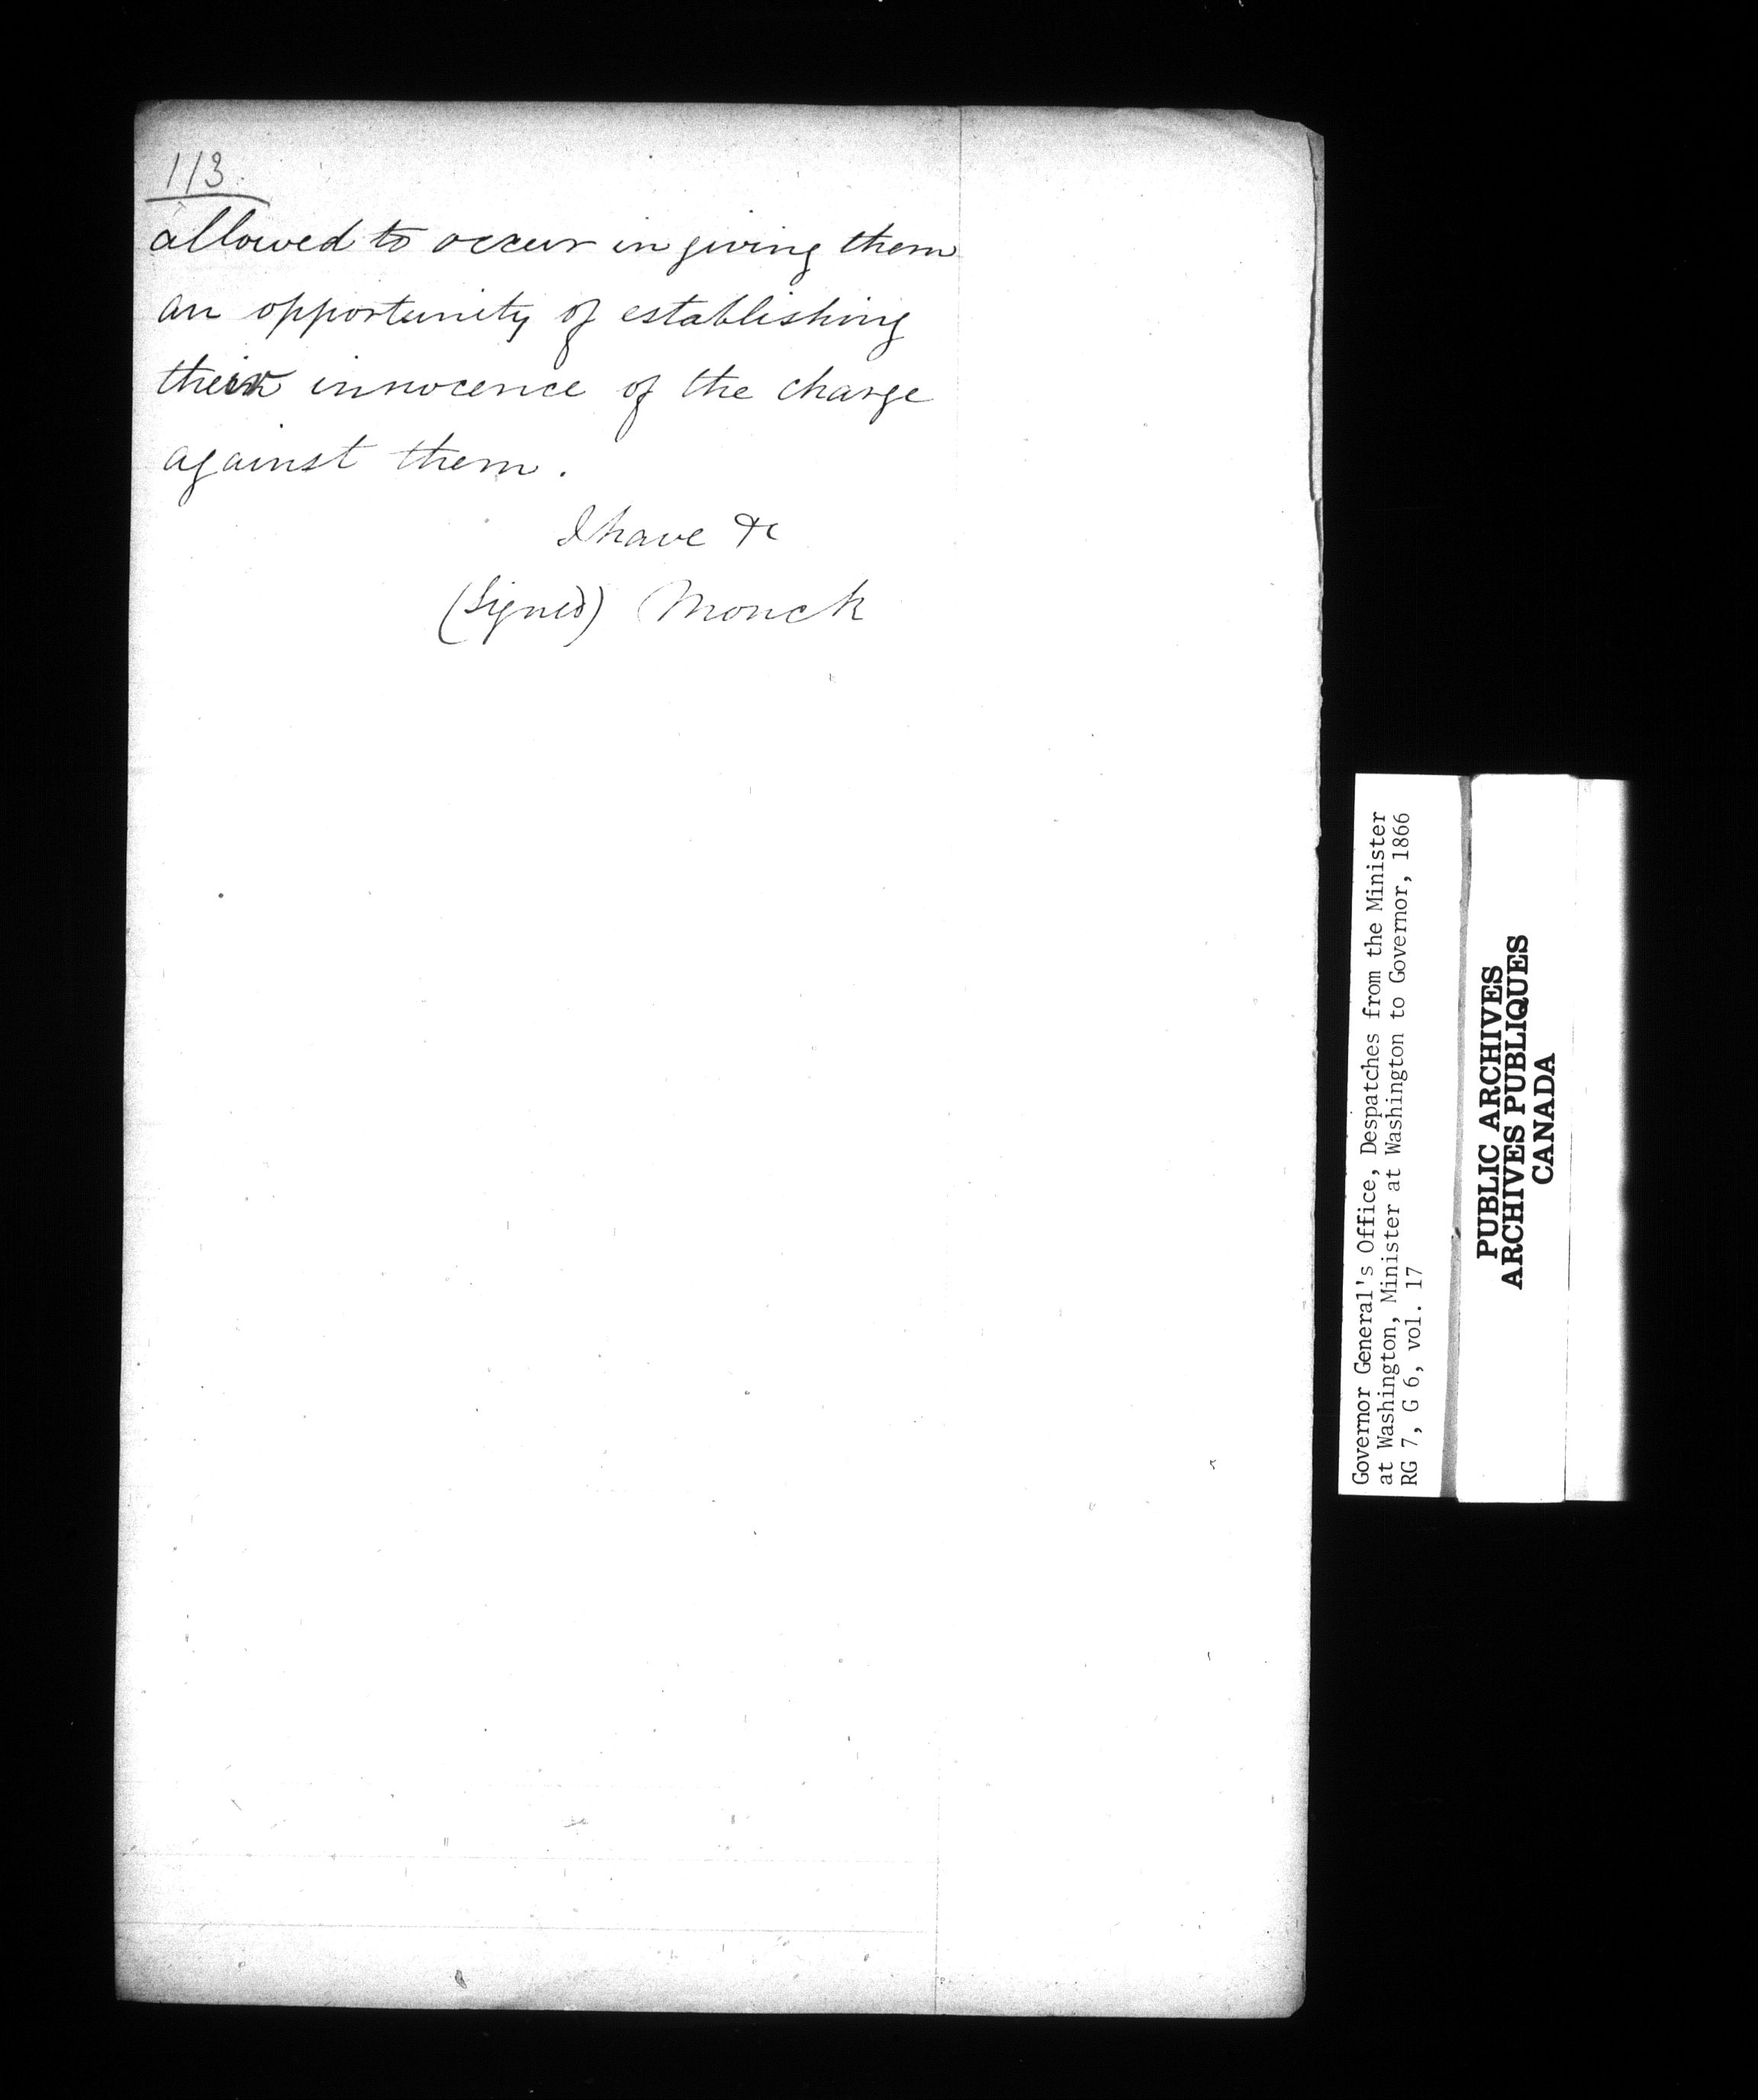 113.
allowed to occur in giving them
an opportunity of establishing
their innocence of the charge
against them.
I have &c
(Signed) Monck
Governor General's Office, Despatches from the Minister
at Washington, Minister at Washington to Governor, 1866
RG 7, G 6, vol. 17
PUBLIC ARCHIVES
ARCHIVES PUBLIQUES
CANADA